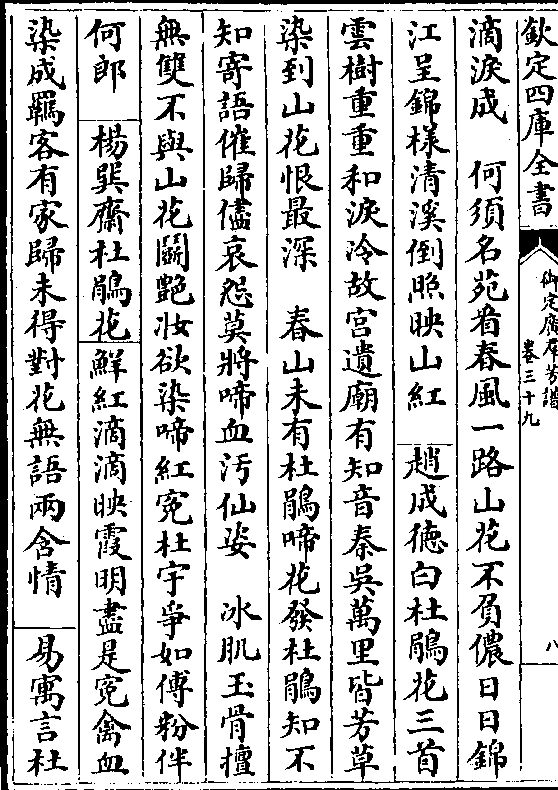 欽定四庫全書
御定廣羣芳譜
卷三十九
八
滴淚成　何須名苑看春風一路山花不負儂日日錦
江呈錦様清溪倒照映山紅　趙成徳白杜鵑花三首
雲樹重重和淚冷故宫遺廟有知音秦吳萬里皆芳草
染到山花恨最深　春山未有杜鵑啼花發杜鵑知不
知寄語催歸儘哀怨莫將啼血汚仙姿　冰肌玉骨擅
無雙不與山花鬬艷妝欲染啼紅寃杜宇爭如傅粉伴
何郎　楊巽齋杜鵑花　鮮紅滴滴映霞明盡是寃禽血
染成羈客有家歸未得對花無語兩含情　易寓言杜